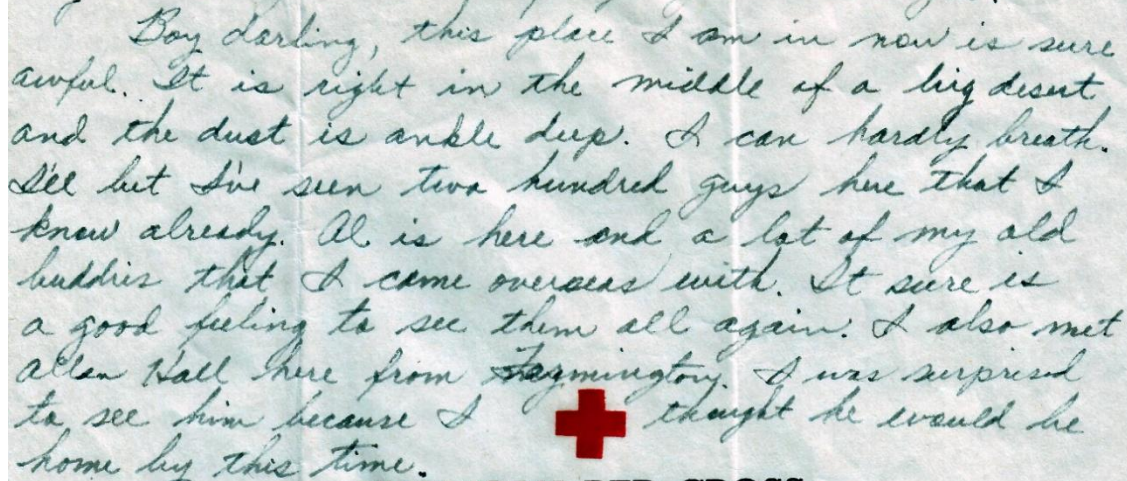 Boy darling, this place I am in now is sure
awful. It is right in the middle of a big desert
and the dust is ankle deep. I can hardly breath.
I'll bet I've seen two hundred guys here that I
know already. Al is here and a lot of my old
buddies that I came overseas with. It sure is
a good feeling to see them all again. I also met
Allan Hall here from Farmington. I was surprised
to see him because I thought he would be
home by this time.
RED CROSS